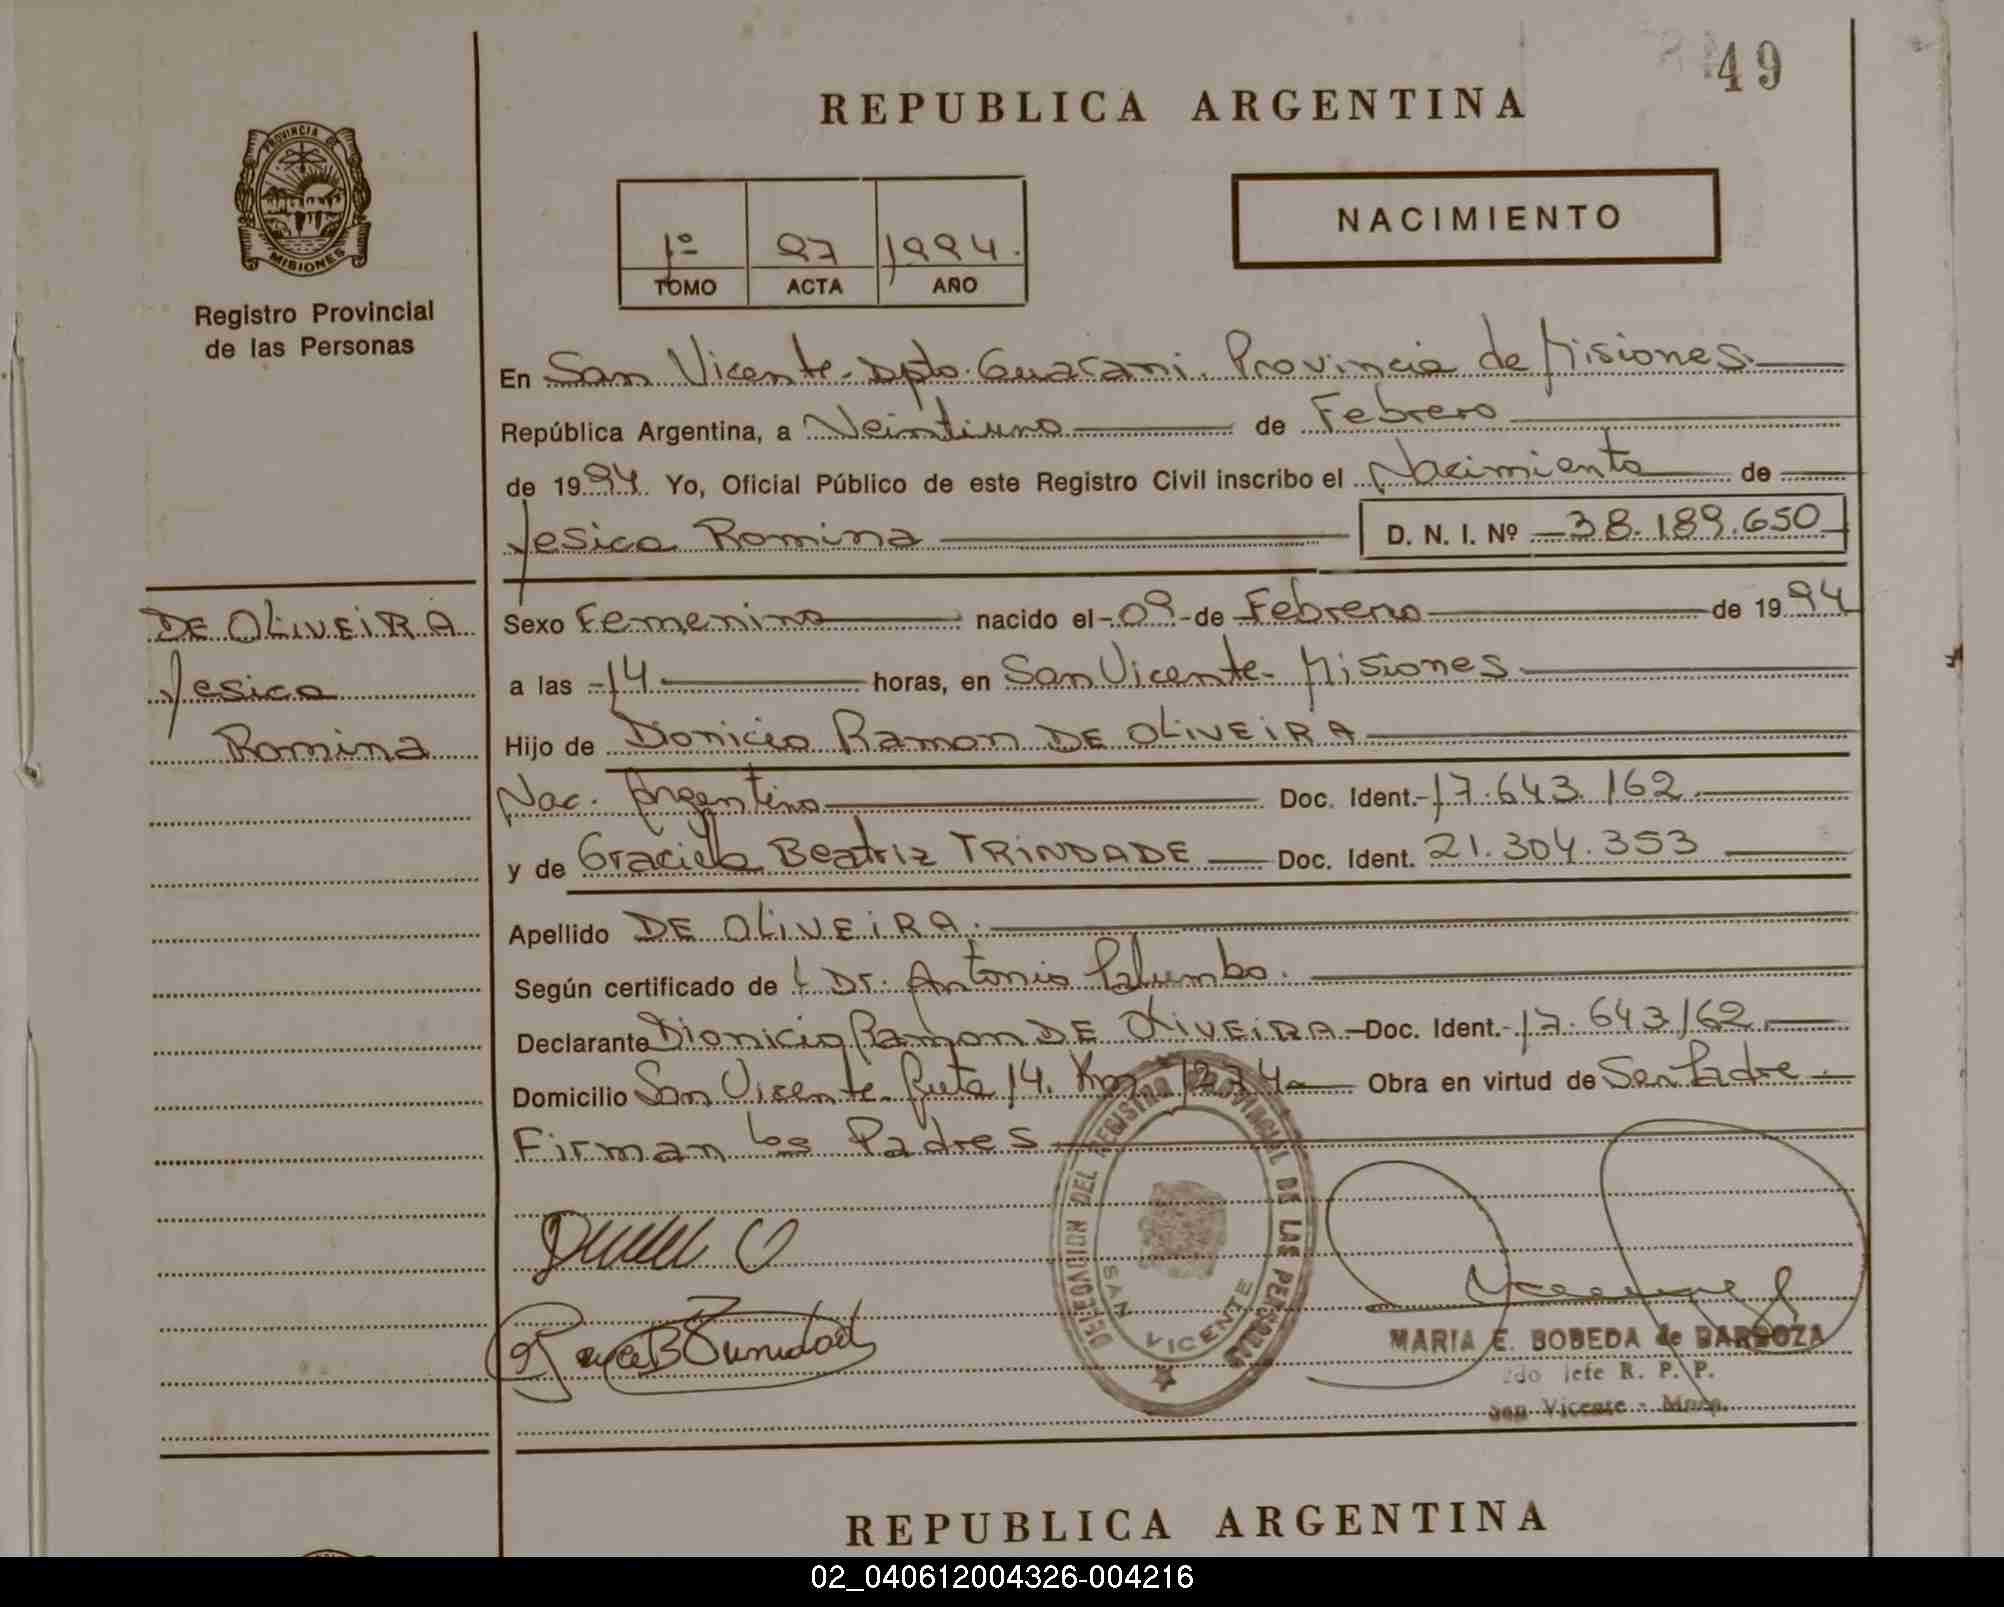 49
REPUBLICA ARGENTINA
PROVINCIA
MISIONES
Registro Provincial
de las Personas
NACIMIENTO
1º 97 1994.
TOMO ACTA AÑO
En San Vicente - Dpto. Guarani. Provincia de Misiones
República Argentina, a Veintiuno de Febrero
de 1994. Yo, Oficial Público de este Registro Civil inscribo el Nacimiento de
Yesica Romina D. N. I. Nº 38.189.650
DE OLIVEIRA
Yesica
Romina
Sexo Femenino nacido el - 09 - de Febrero de 1994
a las - 14 horas, en San Vicente - Misiones
Hijo de Donicio Ramon DE OLIVEIRA
Nac. Argentino Doc. Ident. - 17.643.162
y de Graciela Beatriz TRINDADE Doc. Ident. 21.304.353
Apellido DE OLIVEIRA.
Según certificado de Dr. Antonio Palumbo.
Declarante Dionicio Ramon DE OLIVEIRA - Doc. Ident. - 17.643.162
Domicilio San Vicente - Ruta 14. Km 1274 Obra en virtud de Ser Padre
Firman los Padres
DELEGACION DEL REGISTRO PROVINCIAL DE LAS PERSONAS
SAN VICENTE
MARIA E. BOBEDA de BARBOZA
2do Jefe R. P. P.
San Vicente - Mnes.
REPUBLICA ARGENTINA
02_040612004326-004216